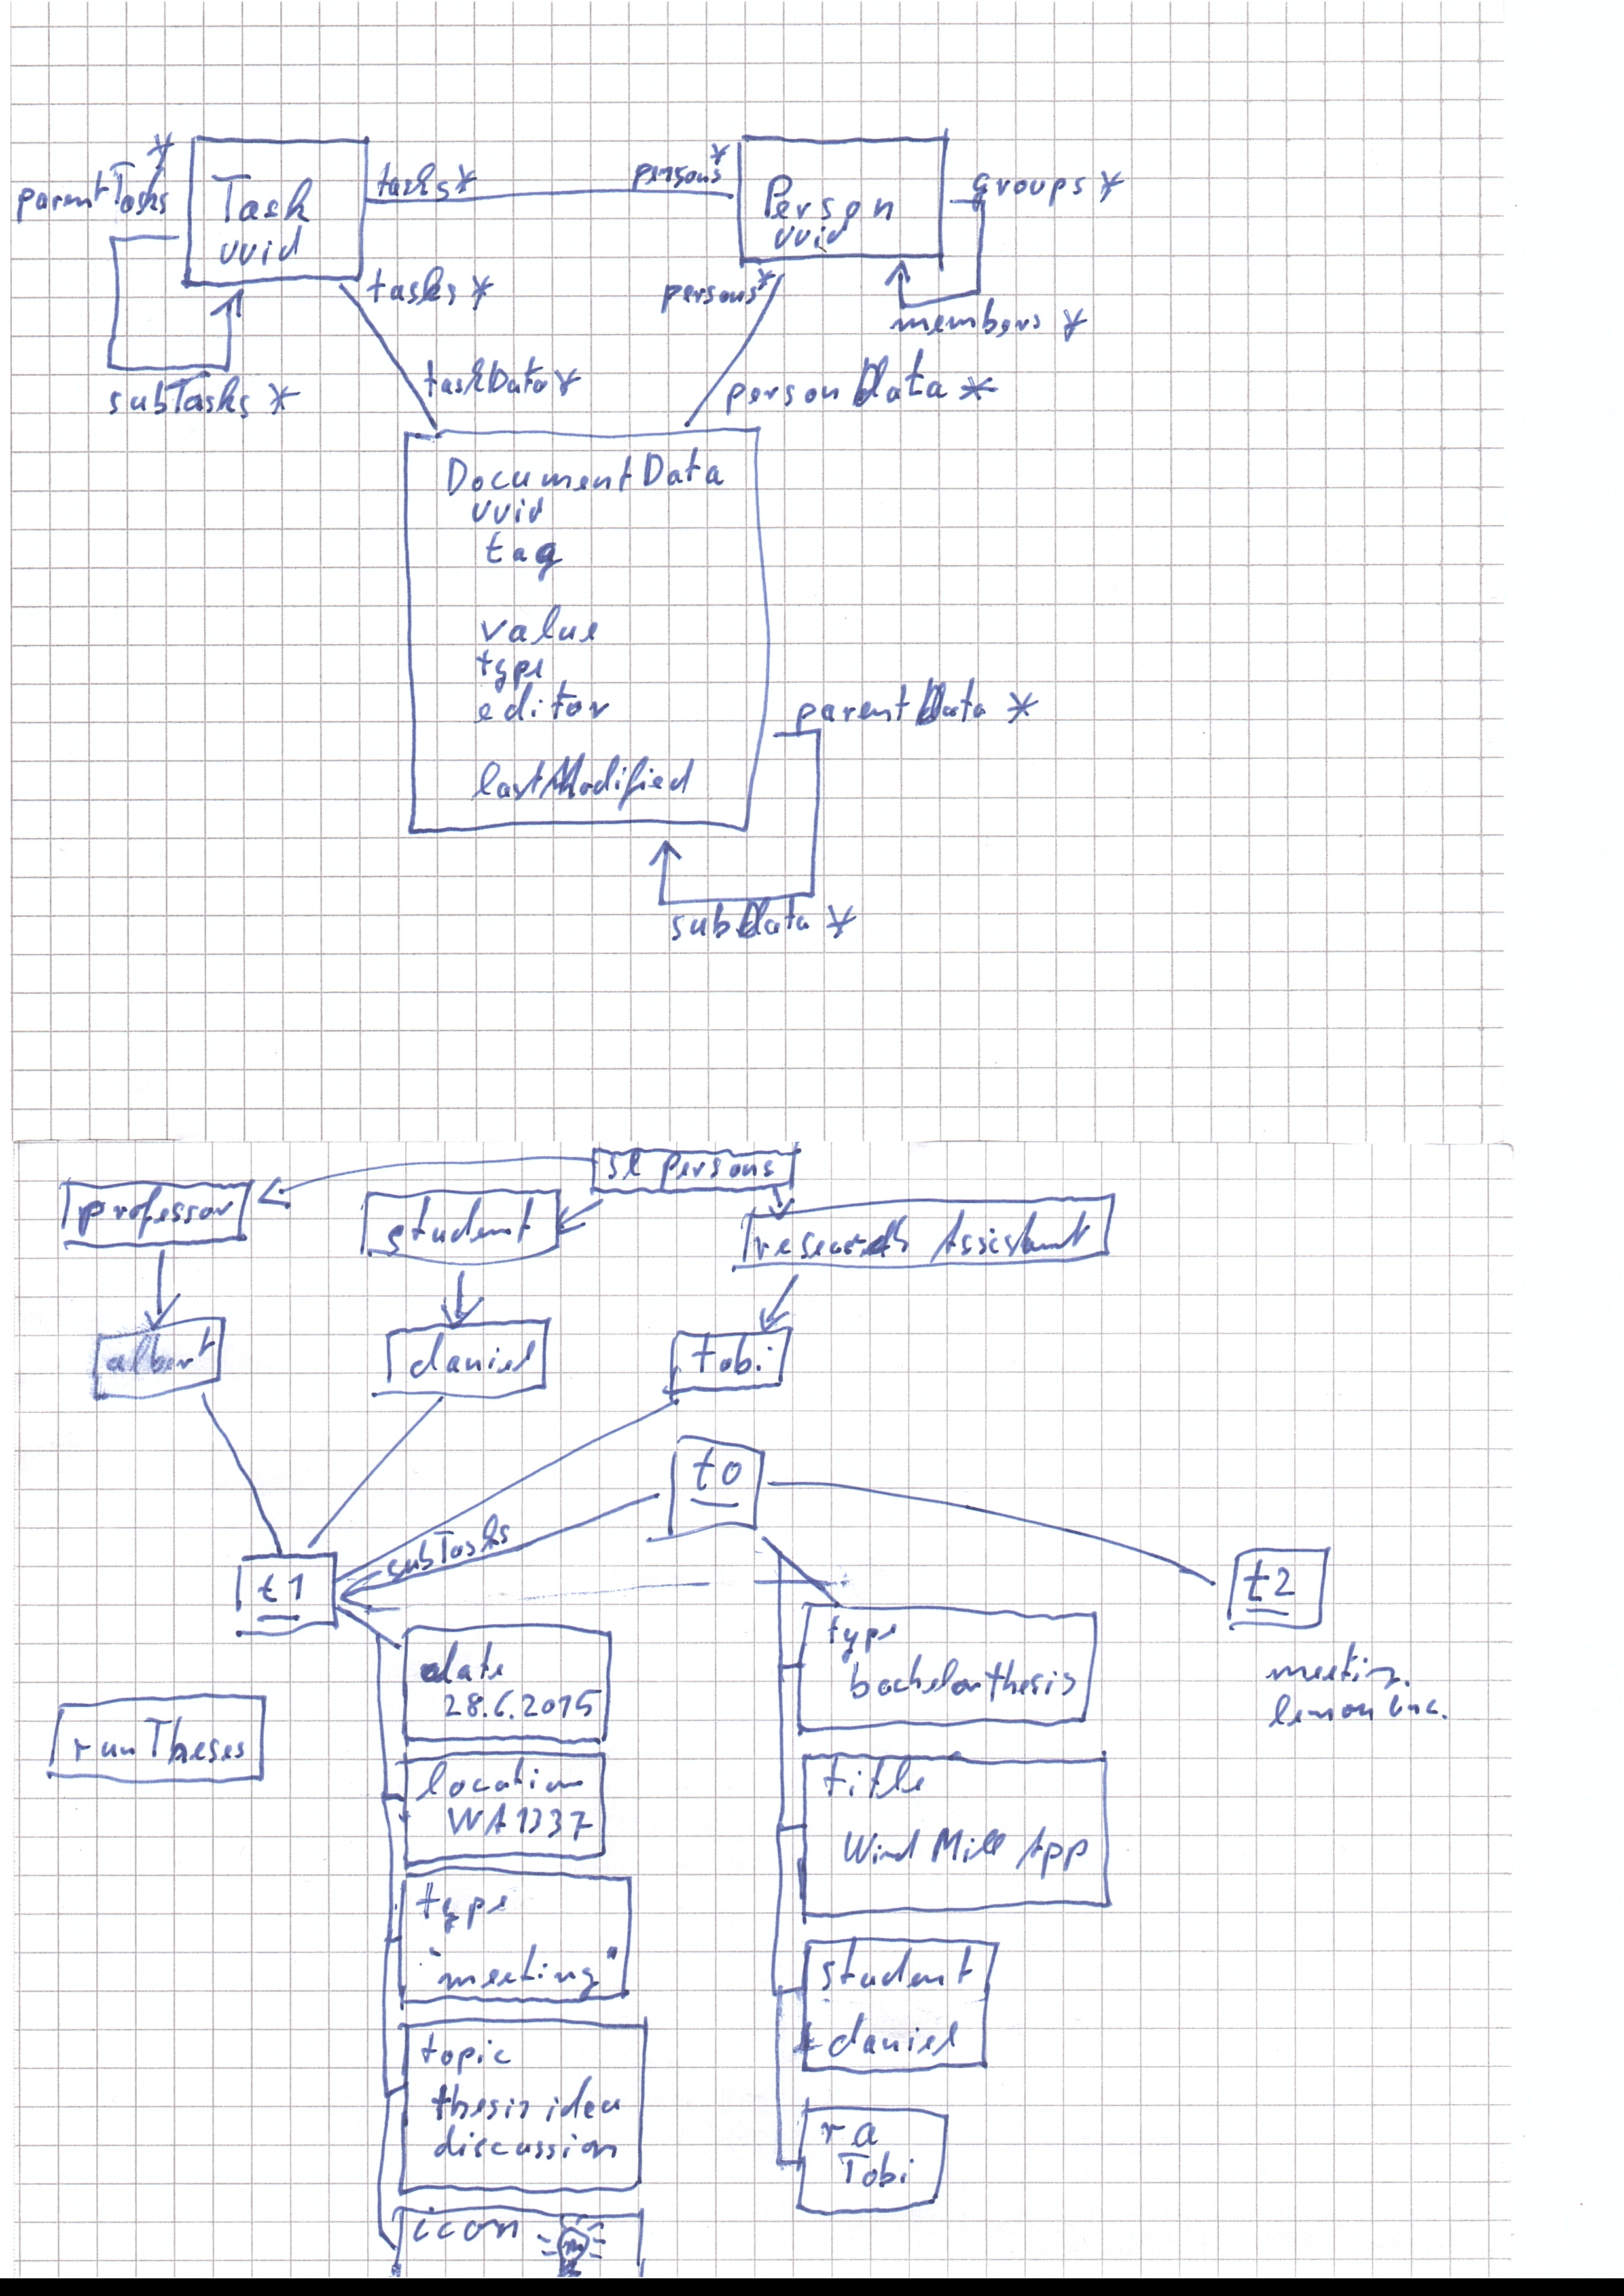 parentTasks *
Task
uuid
tasks *
persons *
Person
uuid
groups *
members *
tasks *
persons *
subTasks *
taskData *
personData *
DocumentData
uuid
tag
value
type
editor
lastModified
parentData *
subData *
se persons
professor
student
research Assistant
albert
daniel
tobi
t0
subTasks
t1
t2
meeting
runTheses
date
28.6.2015
location
WA1337
type
"meeting"
topic
thesis idea
discussion
icon
type
bachelorthesis
title
Wind Mill App
student
daniel
ra
Tobi